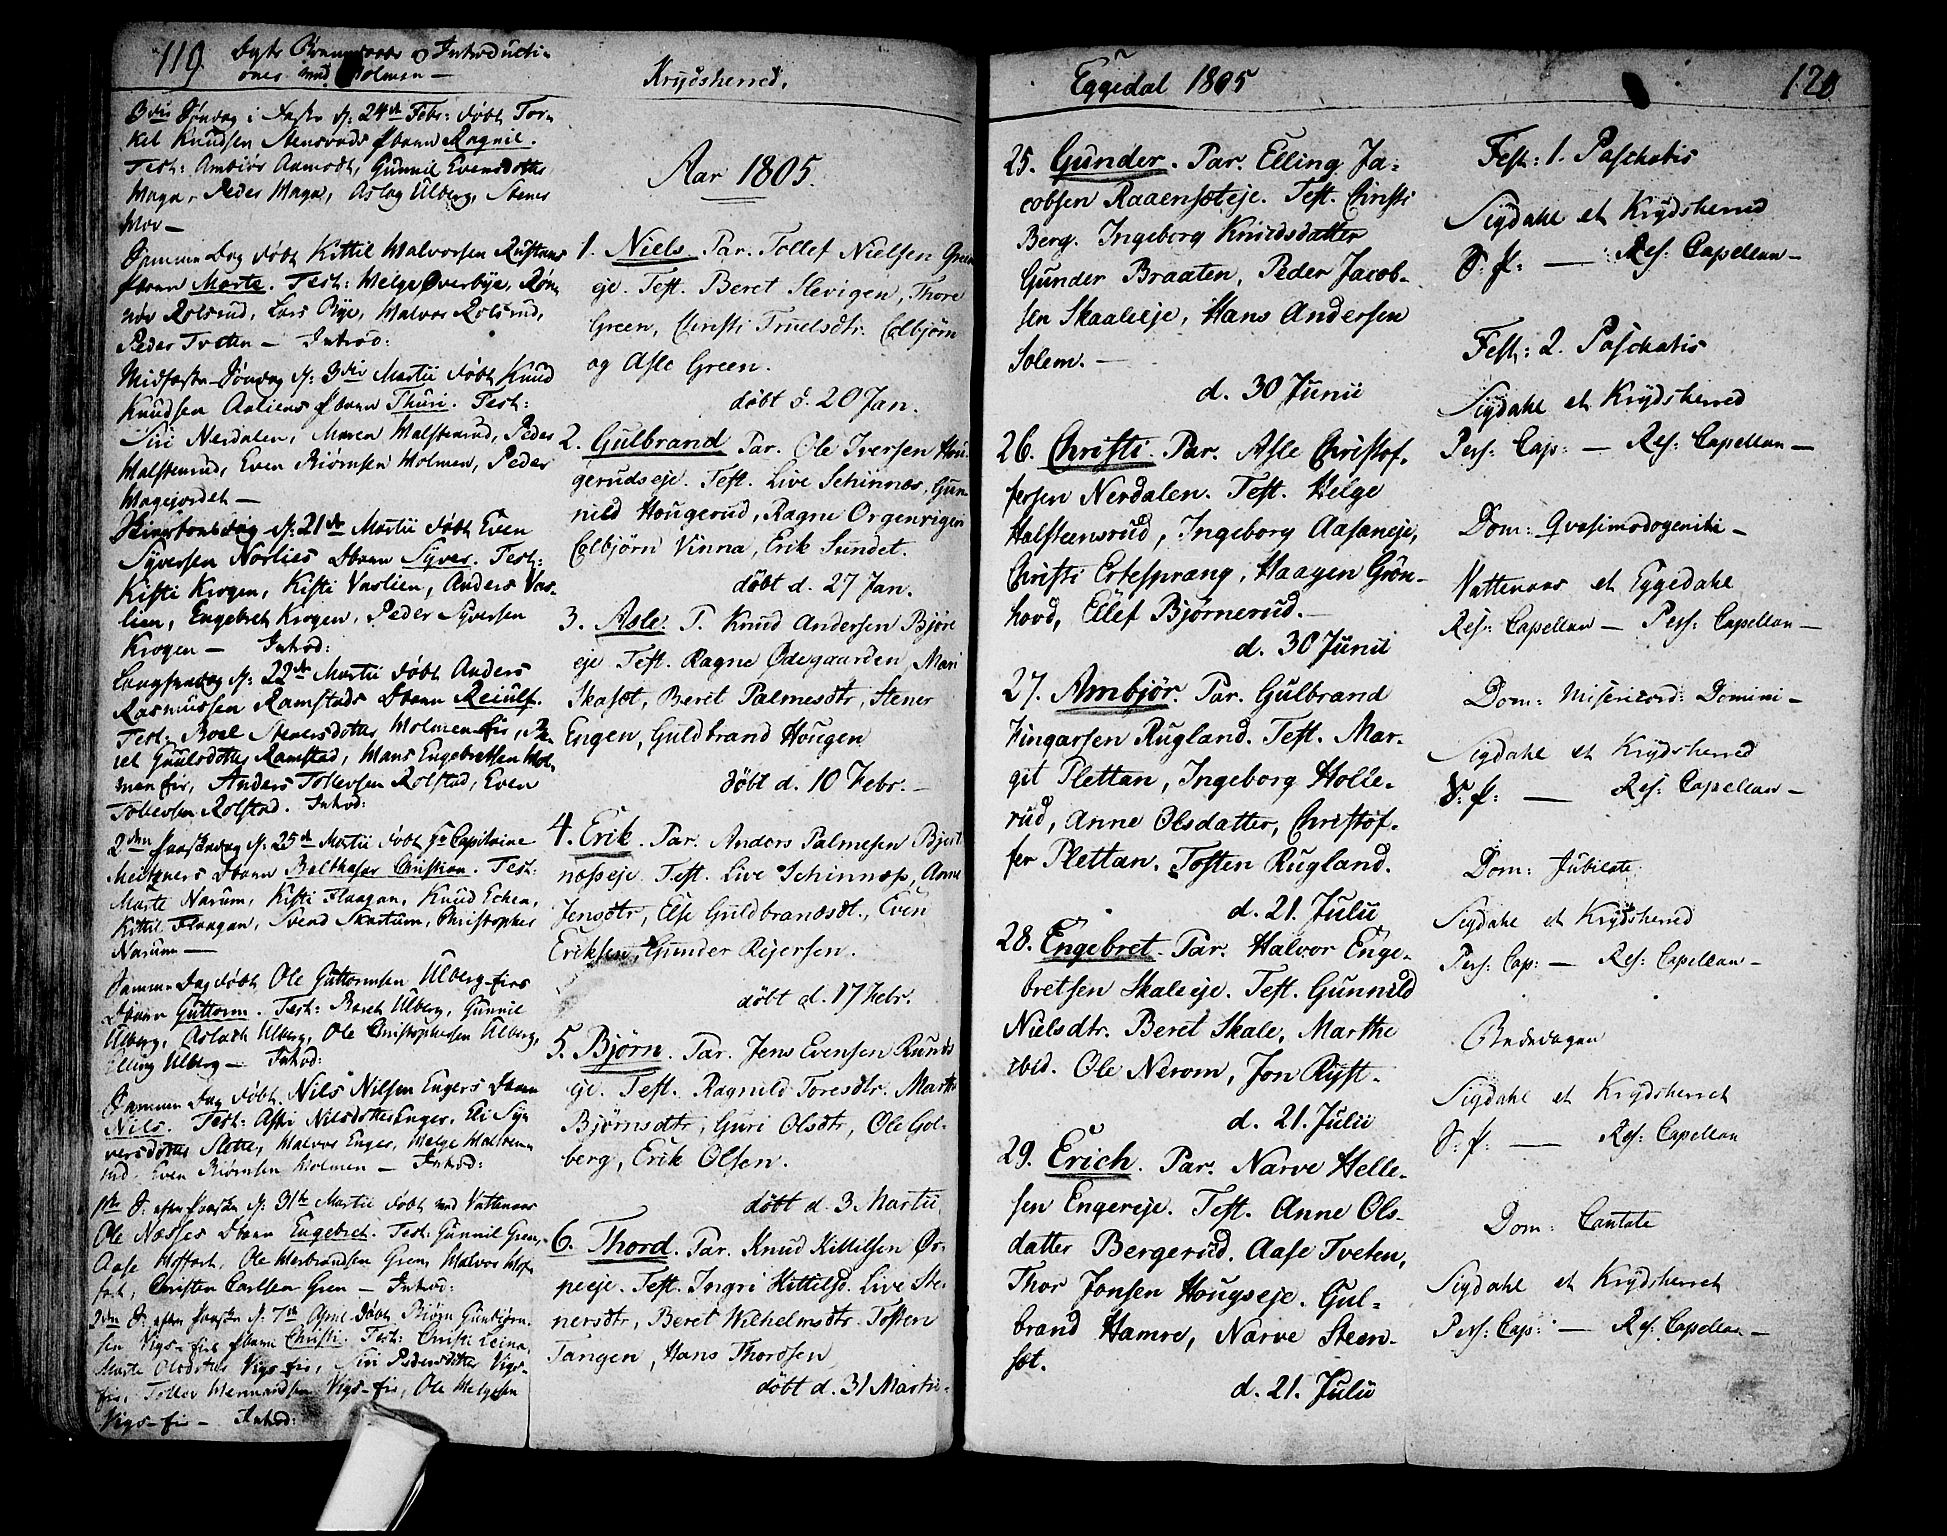 119 Dyts Børnenavn og Introducti-
ones ved Holmen —
3die Søndag i Faste d: 24de Febr: døbt Tor-
kel Knudsen Stensruds Pbarn Ragnil.
Test: Ambiør Aamodt, Gunnil Evensdotter
Maga, Peder Maga, Aslag Ulberg, Stener
Moe —
Samme Dag døbt Kittil Halvorsen Rustans
Pbarn Marte. Test: Helge Øverbye, Røn-
nov Rolsrud, Lars Bye, Halvor Rolsrud,
Peder Tveten — Introd:
Midfaste Søndag d: 3die Martii døbt Knud
Knudsen Aasens Pbarn Thuri. Test:
Siri Nerdalen, Maren Halstenrud, Peder
Halstenrud, Even Biørnsen Holmen, Peder
Hagejordet —
Skiærtorsdag d: 21de Martii døbt Even
Syversen Norlies Dbarn Syver. Test:
Kisti Krogen, Kisti Vaslien, Anders Vas-
lien, Engebret Krogen, Peder Syversen
Krogen — Introd:
Langfredag d: 22de Martii døbt Anders
Rasmussen Ramstads Dbarn Reiulf.
Test: Boel Stenersdotter Holmen-eie,
Guulsdotter Ramstad, Hans Engebretsen Hol-
men-eie, Anders Tollevsen Rolstad, Even
Tollevsen Rolstad. Introd:
2den Paaskedag d: 25de Martii døbt Hr Capitaine
Meitzners Dbarn Balthasar Christian. Test:
Marte Narum, Kisti Flaagan, Knud Echen,
Kittil Flaagan, Svend Skartum, Christopher
Narum —
Samme Dag døbt Ole Guttormsen Ulberg-eies
Dbarn Guttorm. Test: Beret Ulberg, Gunnil
Ulberg, Aslach Ulberg, Ole Christophersen Ulberg,
Elling Ulberg — Introd:
Samme Dag døbt Nils Nilsen Engers Dbarn
Nils. Test: Astri Nilsdotter Enger, Eli Sy-
versdotter Slette, Halvor Enger, Helge Halsten-
rud, Even Biørnsen Holmen — Introd:
1ste S: efter Paaske d: 31te Martii døbt ved Vattenaas
Ole Næsses Dbarn Engebret. Test: Gunnil Gren,
Aase Hoffart, Ole Herbrandsen Gren, Halvor Hof-
fart, Christen Carlsen Gren — Introd:
2den S: efter Paaske d: 7de April døbt Biørn Gunbiørn-
sen Vigs-eies Pbarn Christi. Test: Christi Leina,
Marte Olsdotter Vigs-eie, Siri Pedersdotter Vigs-
eie, Tollev Hermandsen Vigs-eie, Ole Helgesen
Vigs-eie — Introd:
Krydsherred.
Aar 1805.
1. Niels. Par. Tollef Nielsen Green
eje. Test. Beret Slevigen, Thore
Green, Christi Truelsdtr. Colbjørn
og Asle Green.
døbt d. 20 Jan.
2. Gulbrand Par. Ole Iversen Hou-
gerudseje. Test. Live Schinnes, Gun-
nild Hougerud, Ragne Orgenvigen
Colbjørn Vinna, Erik Sundet.
døbt d. 27 Jan.
3. Asle. P. Knud Andersen Bjøre
eje Test. Ragne Ødegaarden, Mari
Skasæt, Beret Palmesdtr, Stener
Engen, Guldbrand Hougen
døbt d. 10 Febr. —
4. Erik. Par. Anders Palmesen Bjert
næsseje. Test. Live Schinnæs, Anne
Jensdtr, Else Guldbrandsdt., Even
Eriksen, Gunder Rejersen.
døbt d. 17 Febr.
5. Bjørn. Par. Jens Evensen Runds
eje. Test. Ragnild Toresdtr. Marthe
Bjørnsdtr, Guri Olsdtr, Ole Gol-
berg, Erik Olsen.
døbt d. 3 Martii
6. Thord. Par. Knud Kittilsen Øs-
peeje. Test. Ingri Kittilsd. Live Ste-
nersdtr, Beret Wilhelmsdtr. Tosten
Tangen, Hans Thordsen
døbt d. 31 Martii.
Eggedal 1805
120
25. Gunder. Par. Elling Ja-
cobsen Raaensæteje. Test. Christi
Berg. Ingeborg Knudsdatter
Gunder Braaten, Peder Jacob-
sen Skaaleeje, Hans Andersen
Solem. —
d. 30 Junii
26. Christi. Par. Asle Christof-
fersen Nerdalen. Test. Helge
Halsteensrud, Ingeborg Aasaneje,
Christi Ertesprang, Haagen Grøn-
hovd, Ellef Bjørnerud. —
d. 30 Junii
27. Ambjør. Par. Gulbrand
Fingarsen Rugland. Test. Mar-
git Plettan, Ingeborg Holle-
rud, Anne Olsdatter, Christof-
fer Plettan. Tosten Rugland.
d. 21. Julii
28. Engebret. Par. Halvor Enge-
bretsen Skaleeje. Test. Gunnild
Nielsdtr. Beret Skale, Marthe
ibid. Ole Nerom, Jon Ryst.
d. 21. Julii
29. Erich. Par. Narve Helle-
sen Engereje. Test. Anne Ols-
datter Bergerud. Aase Tveten,
Thor Jonsen Hougseje. Gul-
brand Hamre, Narve Steen-
sæt.
d. 21. Julii
Fest: 1. Paschatis
Sigdahl et Krydsherred
S: p: — Res: Capellan —
Fest: 2. Paschatis
Sigdahl et Krydsherred
Pers: Cap: — Res: Capellan —
Dom: Qvasimodogeniti —
Vattenaas et Eggedahl
Res: Capellan — Pers: Capellan —
Dom: Misericord: Domini —
Sigdahl et Krydsherred
S: p: — Res: Capellan —
Dom: Jubilate
Sigdahl et Krydsherred
Pers: Cap: — Res: Capellan —
Bededagen
Sigdahl et Krydsherret
S: p: — Res: Capellan
Dom: Cantate
Sigdahl et Krydsherret
Pers: Cap: — Res: Capellan —